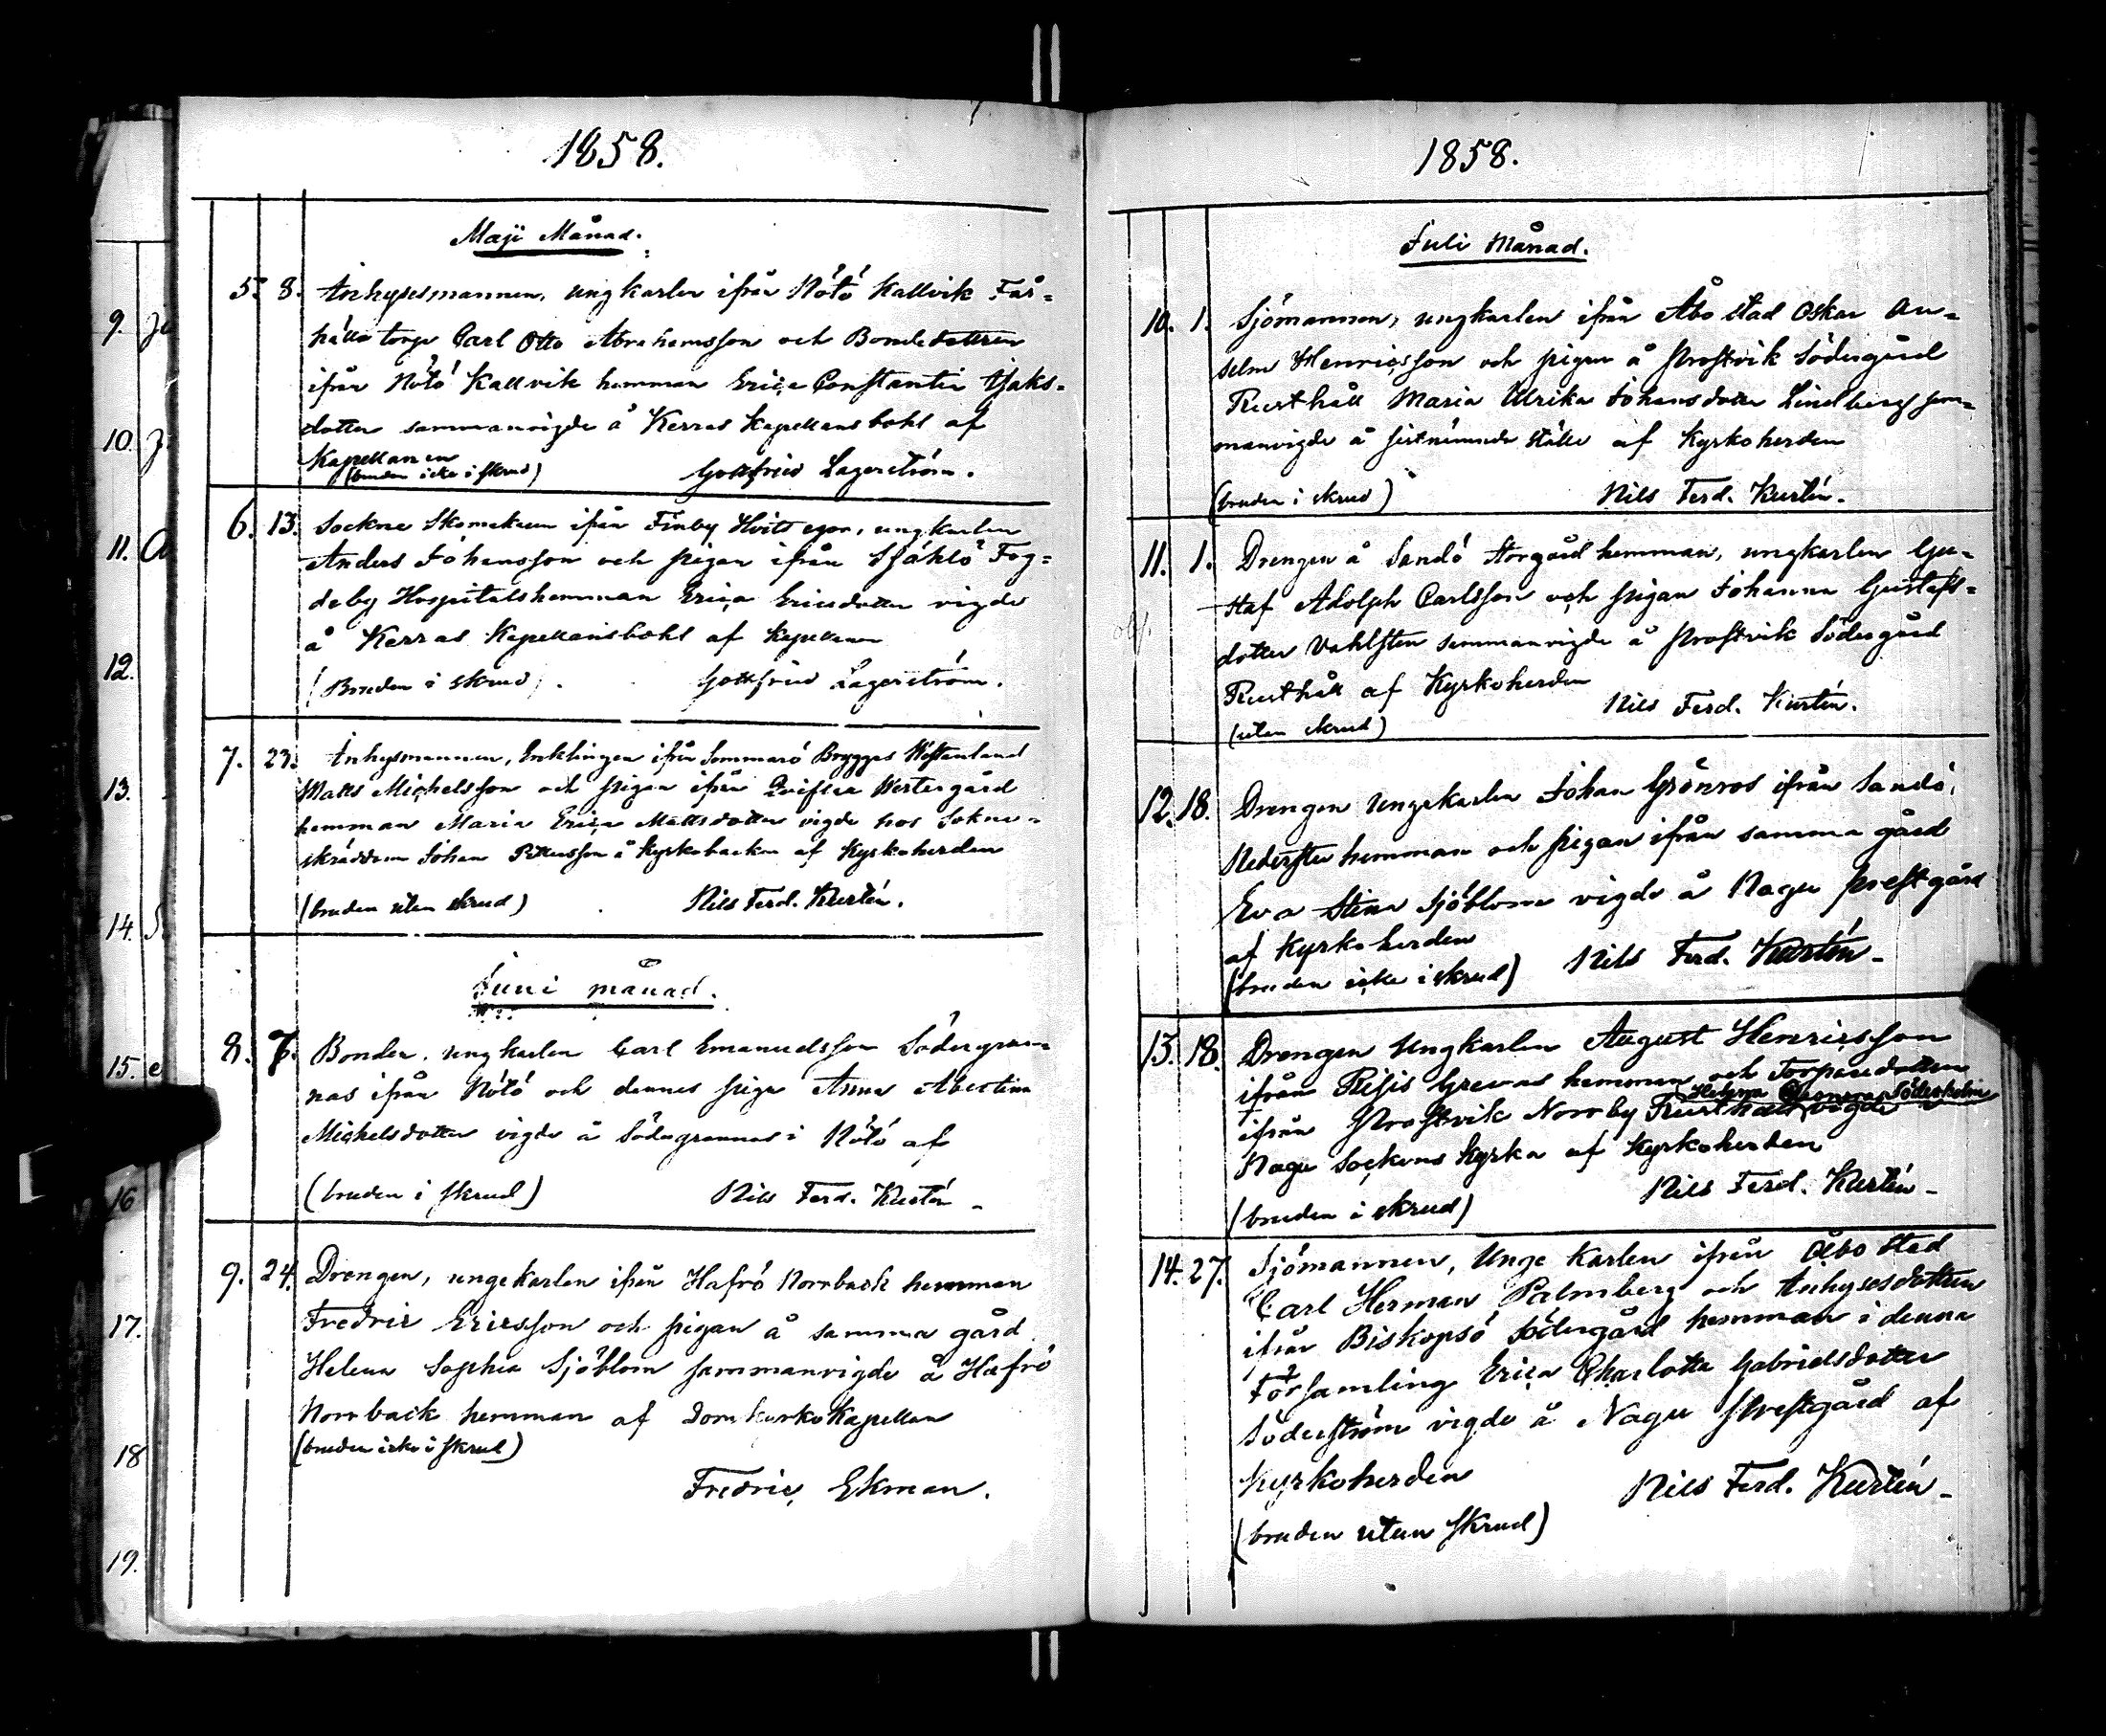 1858.
Maji Månad.
5. 8. Inhysesmannen, ungkarlen ifrån Nötö Kallvik Får=
hälls torp Carl Otto Abrahamsson och Bondedottren
ifrån Nötö Kallvik hemman Erica Constantia Isaks=
dotter sammanvigde å Kerras Kapellansbohl af
Kapellanen
(bruden icke i skrud) Gottfried Lagerström.
6. 13. Sockne Skomakaren ifrån Finby Hvits egor, ungkarlen
Anders Johansson och pigan ifrån Sjählö Fog=
deby Hospitalshemman Erica Ericsdotter vigde
å Kerras Kapellansbohl af Kapellanen
(Bruden i skrud) Gottfried Lagerström.
7. 23. Inhysmannen, Enklingen ifrån Sommarö Brygges Westanland
Matts Michelsson och pigan ifrån Westergård
hemman Maria Erica Mattsdotter vigde hos Sokne=
skräddaren Johan Pettersson å Kyrkobacken af Kyrkoherden
(bruden utan skrud) Nils Ferd. Kurtén.
Juni månad.
8. 7. Bonden, ungkarlen Carl Emanuelsson Södergran=
nas ifrån Nötö och dennes piga Anna Albertina
Michelsdotter vigde å Södergrannas i Nötö af
(bruden i skrud) Nils Ferd. Kurtén
9. 24. Drengen, ungekarlen ifrån Hafrö Norrback hemman
Fredric Ericsson och pigan å samma gård
Helena Sophia Sjöblom sammanvigde å Hafrö
Norrback hemman af Domkyrko Kapellan
(bruden icke i skrud)
Fredric Ekman.
1858.
Juli Månad.
10. 1. Sjömannen, ungkarlen ifrån Åbo stad Oskar An=
selm Henricsson och pigan å Prostvik Södergård
Rusthåll Maria Ulrika Johansdotter Lindberg sam=
manvigde å sistnämnde ställe af Kyrkoherden
(bruden i skrud) Nils Ferd. Kurtén.
11. 1. Drengen å Sandö Storgård hemman, ungkarlen Gu=
staf Adolph Carlsson och pigan Johanna Gustafs=
dotter Vahlsten sammanvigde å Prostvik Södergård
Rusthåll af Kyrkoherden
(utan skrud) Nils Ferd. Kurtén.
12. 18. Drengen Ungekarlen Johan Grönros ifrån Sandö,
Nedersta hemman och pigan ifrån samma gård
Eva Stina Sjöblom vigde å Nagu prestgård
af Kyrkoherden
(bruden icke i skrud) Nils Ferd. Kurtén
13. 18. Drengen Ungkarlen August Henricsson
ifrån Risis Grevas hemman och Torparedottren
Helena Söderholm
ifrån Prostvik Norrby Rusthåll vigde
Nagu Sockens kyrka af Kyrkoherden
(bruden i skrud) Nils Ferd. Kurtén
14. 27. Sjömannen, Unge Karlen ifrån Åbo stad
Carl Herman Palmberg och Inhysesdottren
ifrån Biskopsö Södergård hemman i denna
Församling Erica Charlotta Gabrielsdotter
Söderström vigde å Nagu Prestgård af
Kyrkoherden Nils Ferd. Kurtén
(bruden utan skrud)
9.
10.
11.
12.
13.
14.
15.
16
17.
18
19.